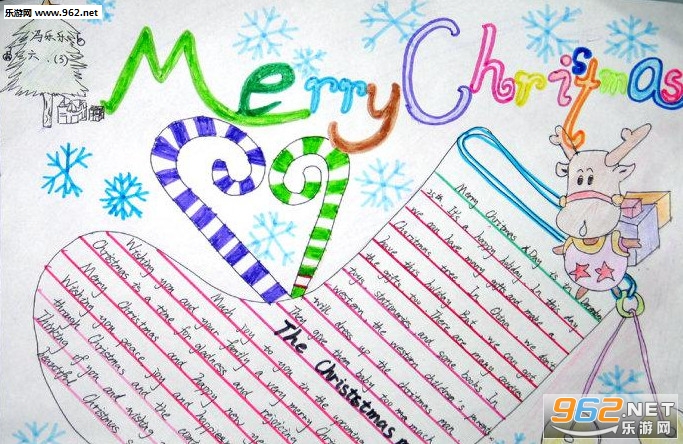 乐游网
www.962.net
冯乐乐
六.(3)
Merry Christmas
Merry Christmas Day is in December
25th It's a happy holiday In this day
we can have many gifts and make
Christmas tree In China we don't
have this holiday But we can get
the gifts too There are many
toys stationaries and some books In
western the western children's parents
will dress up the christmas man
They give the baby too much
The Christstmas
Wishing you and your family a very merry
Christmas is a time for gladness and rejoicing
Merry Christmas and happy new year
Wishing you peace joy and
through Christmas and the coming
Thinking of you and wishing
beautiful Christmas
Much joy to you in the
962.NET
乐游网